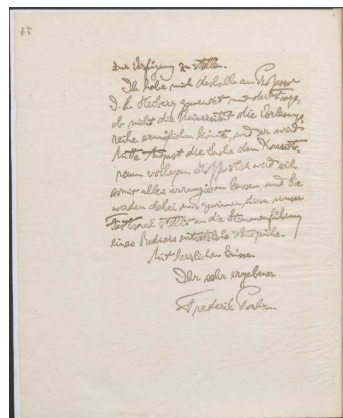 zur Verfügung zu stellen.
Ich habe mich deshalb an Professor
J. L. Heiberg gewendet mit der Frage,
ob nicht die Universität die Vorlesungs
reihe ermöglichen könnte, und er wird
Mitte August die Sache dem Konsisto
rium vorlegen. Hoffentlich wird sich
somit alles arrangieren lassen, und Sie
werden dabei nur gewinnen, denn unser
Festsaal stellt an die Stimmführung
eines Redners entsetzliche Ansprüche.
Mit herzlichen Grüssen
Ihr sehr ergebener
Frederik Poulsen.